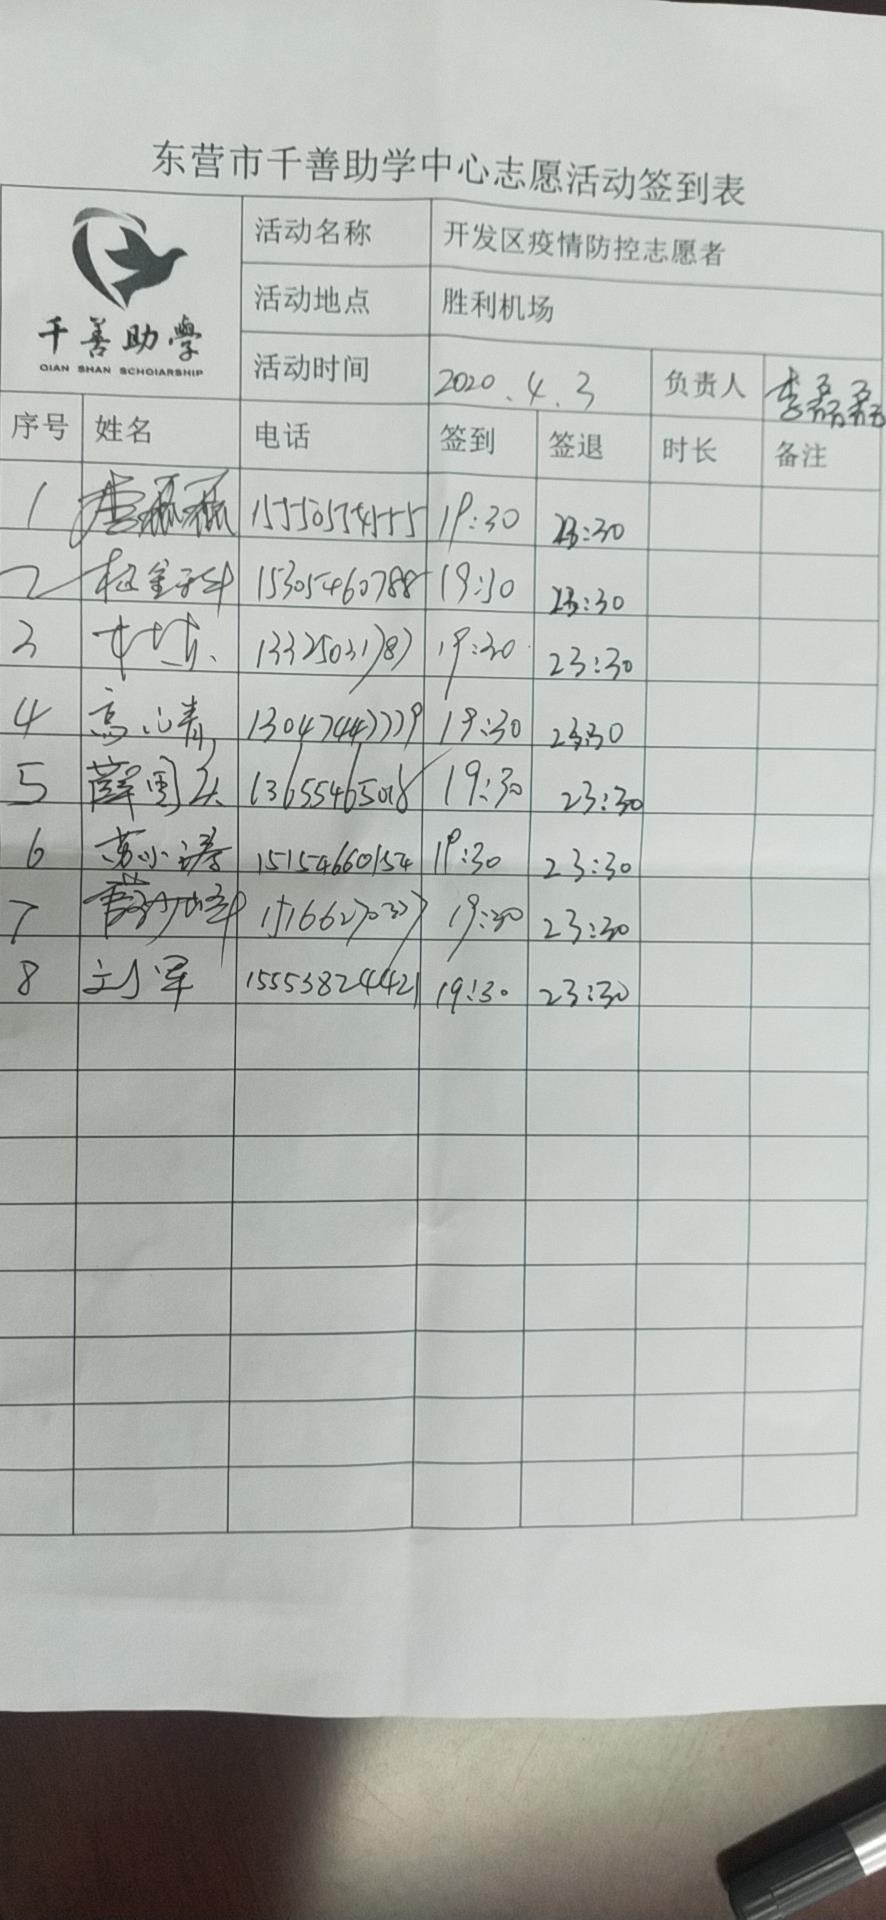 东营市千善助学中心志愿活动签到表
千善助學
QIAN SHAN SCHOIARSHIP
活动名称 开发区疫情防控志愿者
活动地点 胜利机场
活动时间 2020.4.3 负责人 李磊磊
序号 姓名 电话 签到 签退 时长 备注
1 李磊磊 15550554555 19:30 23:30
2 15305460788 19:30 23:30
3 13325031787 19:30 23:30
4 高心青 13047447779 19:30 23:30
5 薛周天 13655465018 19:30 23:30
6 苏小涛 15154660154 19:30 23:30
7 15166270327 19:30 23:30
8 刘军 15553824421 19:30 23:30